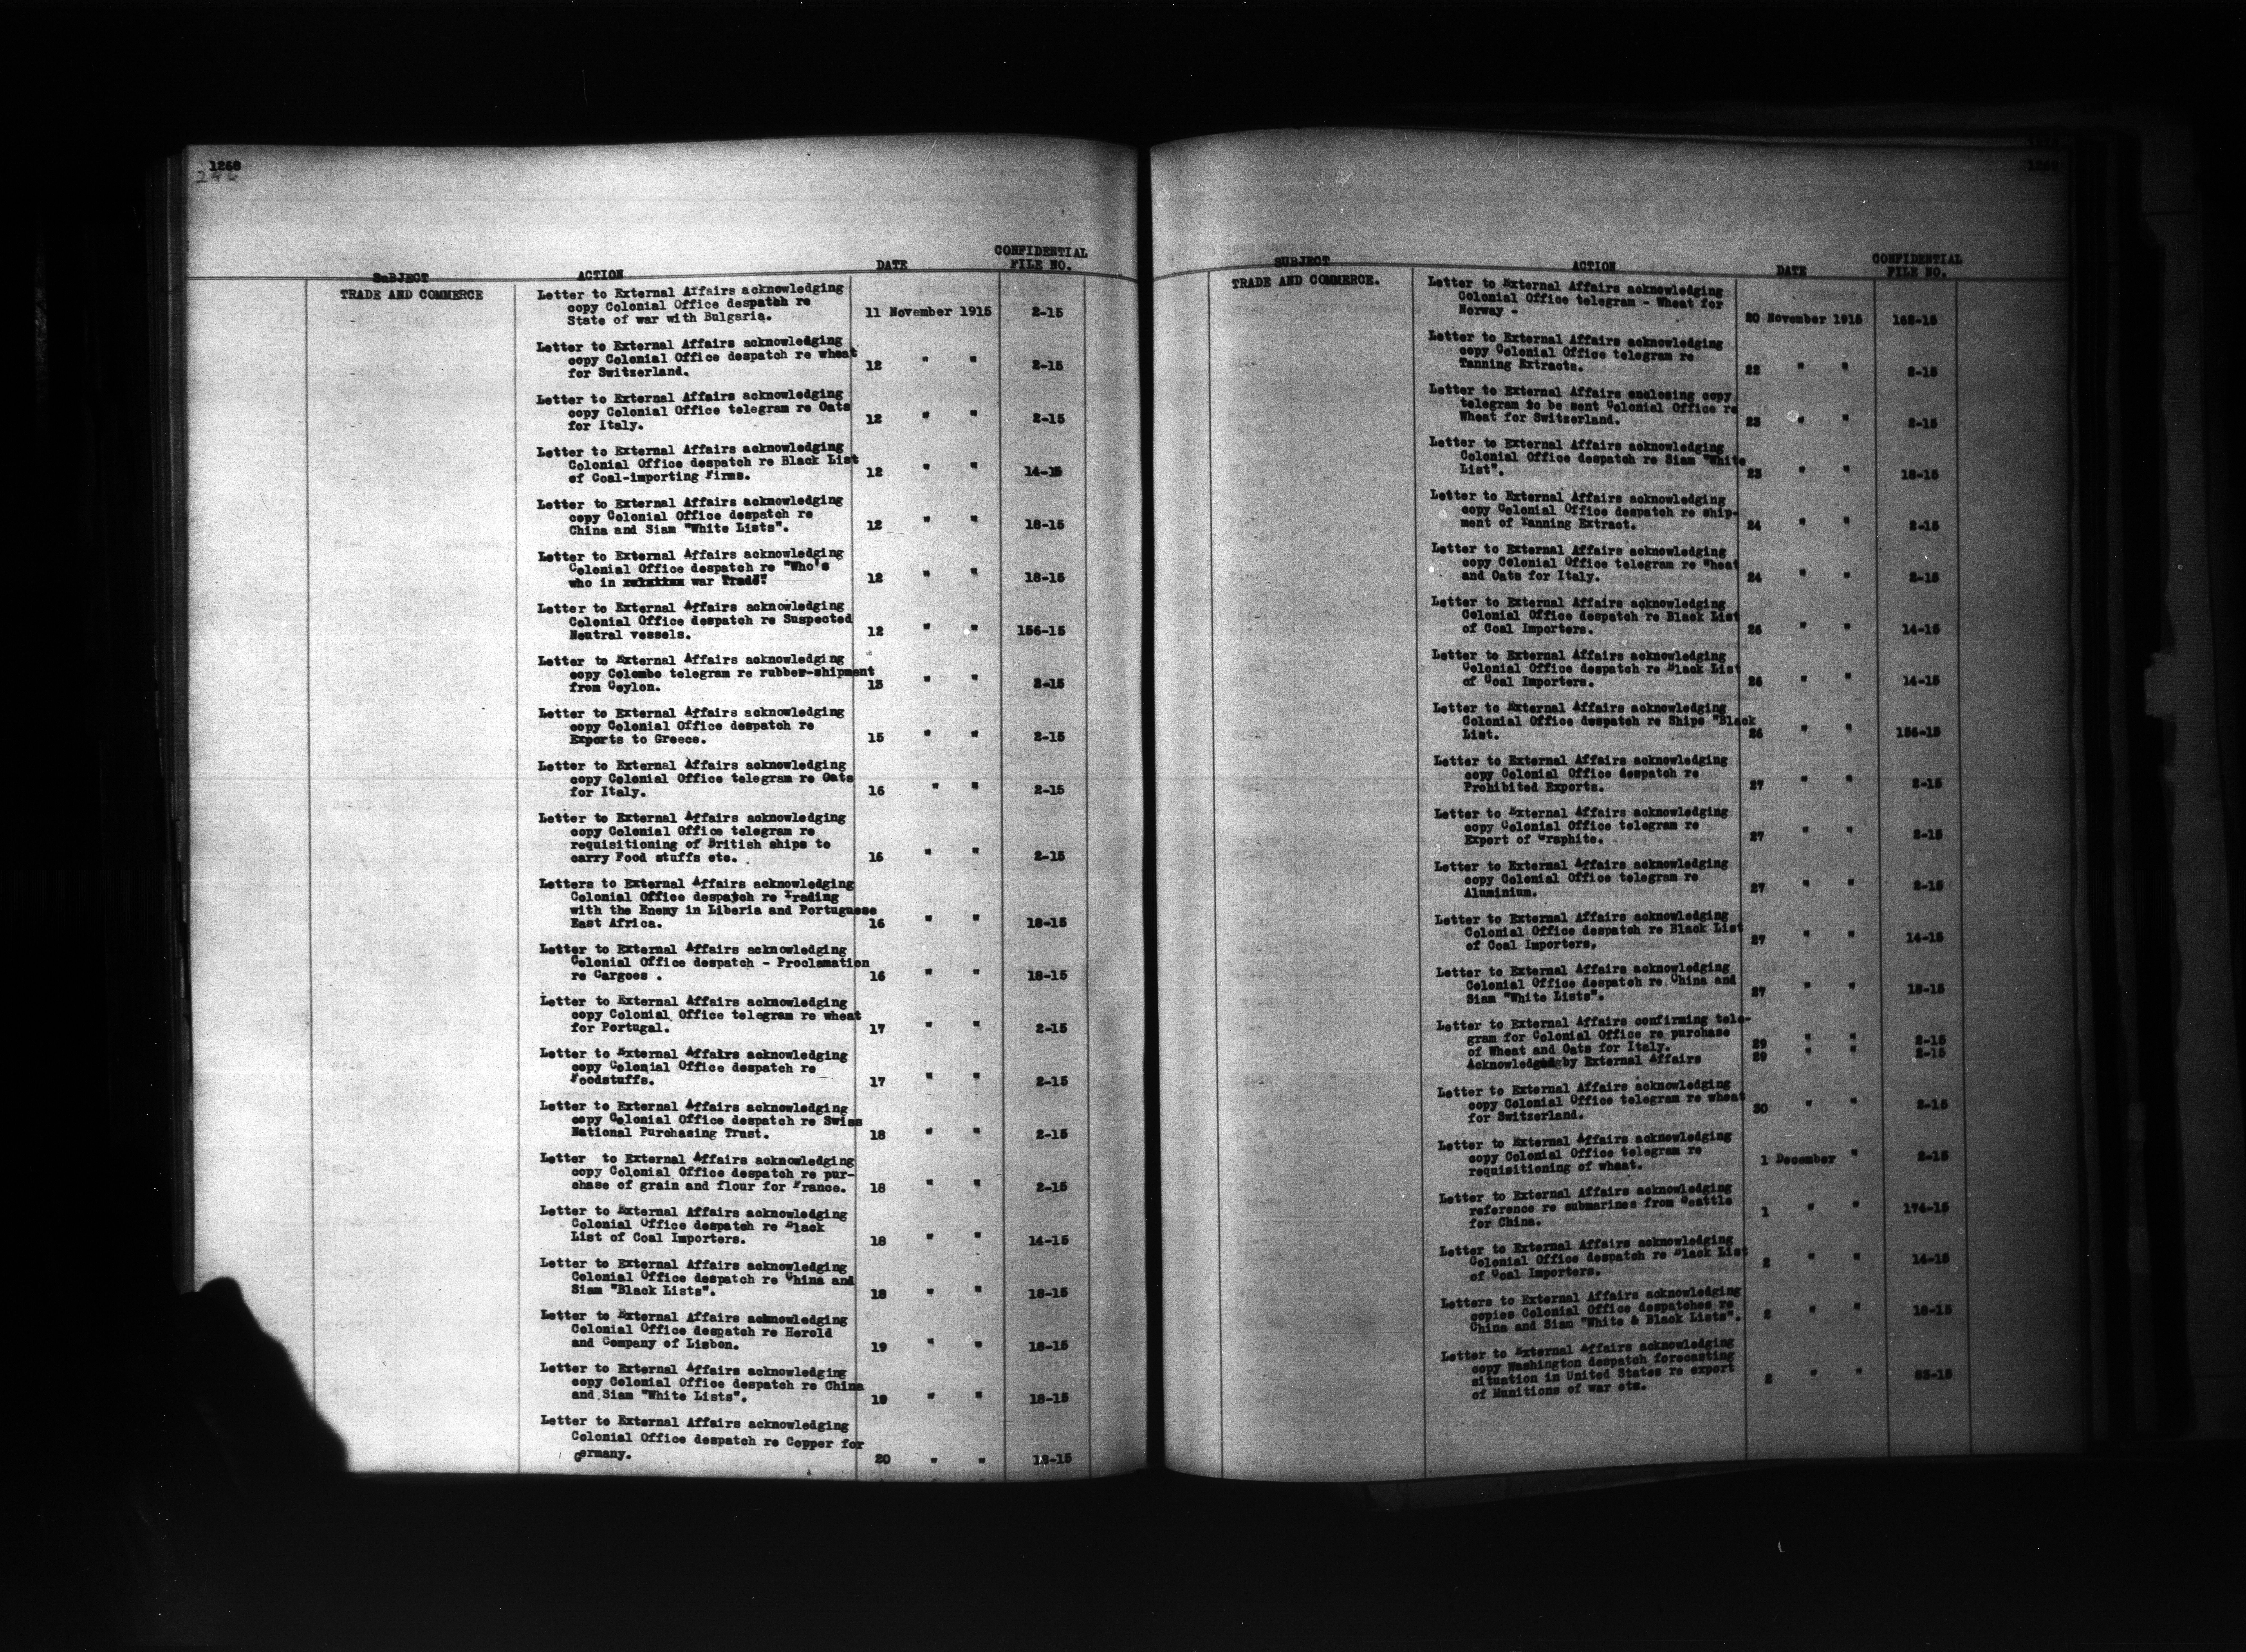 1268
SUBJECT ACTION DATE CONFIDENTIAL FILE NO.
TRADE AND COMMERCE
Letter to External Affairs acknowledging
copy Colonial Office despatch re
State of war with Bulgaria. 11 November 1915 2-15
Letter to External Affairs acknowledging
copy Colonial Office despatch re wheat
for Switzerland. 12 " " 2-15
Letter to External Affairs acknowledging
copy Colonial Office telegram re Oats
for Italy. 12 " " 2-15
Letter to External Affairs acknowledging
Colonial Office despatch re Black List
of Coal-importing Firms. 12 " " 14-15
Letter to External Affairs acknowledging
copy Colonial Office despatch re
China and Siam "White Lists". 12 " " 18-15
Letter to External Affairs acknowledging
Colonial Office despatch re "Who's
who in war Trade" 12 " " 18-15
Letter to External Affairs acknowledging
Colonial Office despatch re Suspected
Neutral vessels. 12 " " 156-15
Letter to External Affairs acknowledging
copy Colombo telegram re rubber-shipment
from Ceylon. 13 " " 2-15
Letter to External Affairs acknowledging
copy Colonial Office despatch re
Exports to Greece. 15 " " 2-15
Letter to External Affairs acknowledging
copy Colonial Office telegram re Oats
for Italy. 16 " " 2-15
Letter to External Affairs acknowledging
copy Colonial Office telegram re
requisitioning of British ships to
carry Food stuffs etc. 16 " " 2-15
Letters to External Affairs acknowledging
Colonial Office despatch re Trading
with the Enemy in Liberia and Portuguese
East Africa. 16 " " 18-15
Letter to External Affairs acknowledging
Colonial Office despatch - Proclamation
re Cargoes . 16 " " 18-15
Letter to External Affairs acknowledging
copy Colonial Office telegram re wheat
for Portugal. 17 " " 2-15
Letter to External Affairs acknowledging
copy Colonial Office despatch re
Foodstuffs. 17 " " 2-15
Letter to External Affairs acknowledging
copy Colonial Office despatch re Swiss
National Purchasing Trust. 18 " " 2-15
Letter to External Affairs acknowledging
copy Colonial Office despatch re pur-
chase of grain and flour for France. 18 " " 2-15
Letter to External Affairs acknowledging
Colonial Office despatch re Black
List of Coal Importers. 18 " " 14-15
Letter to External Affairs acknowledging
Colonial Office despatch re China and
Siam "Black Lists". 18 " " 18-15
Letter to External Affairs acknowledging
Colonial Office despatch re Herold
and Company of Lisbon. 19 " " 18-15
Letter to External Affairs acknowledging
copy Colonial Office despatch re China
and Siam "White Lists". 19 " " 18-15
Letter to External Affairs acknowledging
Colonial Office despatch re Copper for
Germany. 20 " " 18-15
SUBJECT ACTION DATE CONFIDENTIAL FILE NO.
TRADE AND COMMERCE.
Letter to External Affairs acknowledging
Colonial Office telegram - Wheat for
Norway - 20 November 1915 162-15
Letter to External Affairs acknowledging
copy Colonial Office telegram re
Tanning Extracts. 22 " " 2-15
Letter to External Affairs enclosing copy
telegram to be sent Colonial Office re
Wheat for Switzerland. 23 " " 2-15
Letter to External Affairs acknowledging
Colonial Office despatch re Siam "White
List". 23 " " 18-15
Letter to External Affairs acknowledging
copy Colonial Office despatch re ship-
ment of Tanning Extract. 24 " " 2-15
Letter to External Affairs acknowledging
copy Colonial Office telegram re Wheat
and Oats for Italy. 24 " " 2-15
Letter to External Affairs acknowledging
Colonial Office despatch re Black List
of Coal Importers. 26 " " 14-15
Letter to External Affairs acknowledging
Colonial Office despatch re Black List
of Coal Importers. 26 " " 14-15
Letter to External Affairs acknowledging
Colonial Office despatch re Ships "Black
List. 26 " " 156-15
Letter to External Affairs acknowledging
copy Colonial Office despatch re
Prohibited Exports. 27 " " 2-15
Letter to External Affairs acknowledging
copy Colonial Office telegram re
Export of Graphite. 27 " " 2-15
Letter to External Affairs acknowledging
copy Colonial Office telegram re
Aluminium. 27 " " 2-15
Letter to External Affairs acknowledging
Colonial Office despatch re Black List
of Coal Importers, 27 " " 14-15
Letter to External Affairs acknowledging
Colonial Office despatch re China and
Siam "White Lists". 27 " " 18-15
Letter to External Affairs confirming tele-
gram for Colonial Office re purchase
of Wheat and Oats for Italy. 29 " " 2-15
Acknowledged by External Affairs 29 " " 2-15
Letter to External Affairs acknowledging
copy Colonial Office telegram re wheat
for Switzerland. 30 " " 2-15
Letter to External Affairs acknowledging
copy Colonial Office telegram re
requisitioning of wheat. 1 December " 2-15
Letter to External Affairs acknowledging
reference re submarines from Seattle
for China. 1 " " 174-15
Letter to External Affairs acknowledging
Colonial Office despatch re Black List
of Coal Importers. 2 " " 14-15
Letters to External Affairs acknowledging
copies Colonial Office despatches re
China and Siam "White & Black Lists". 2 " " 18-15
Letter to External Affairs acknowledging
copy Washington despatch forecasting
situation in United States re export
of Munitions of war etc. 2 " " 83-15